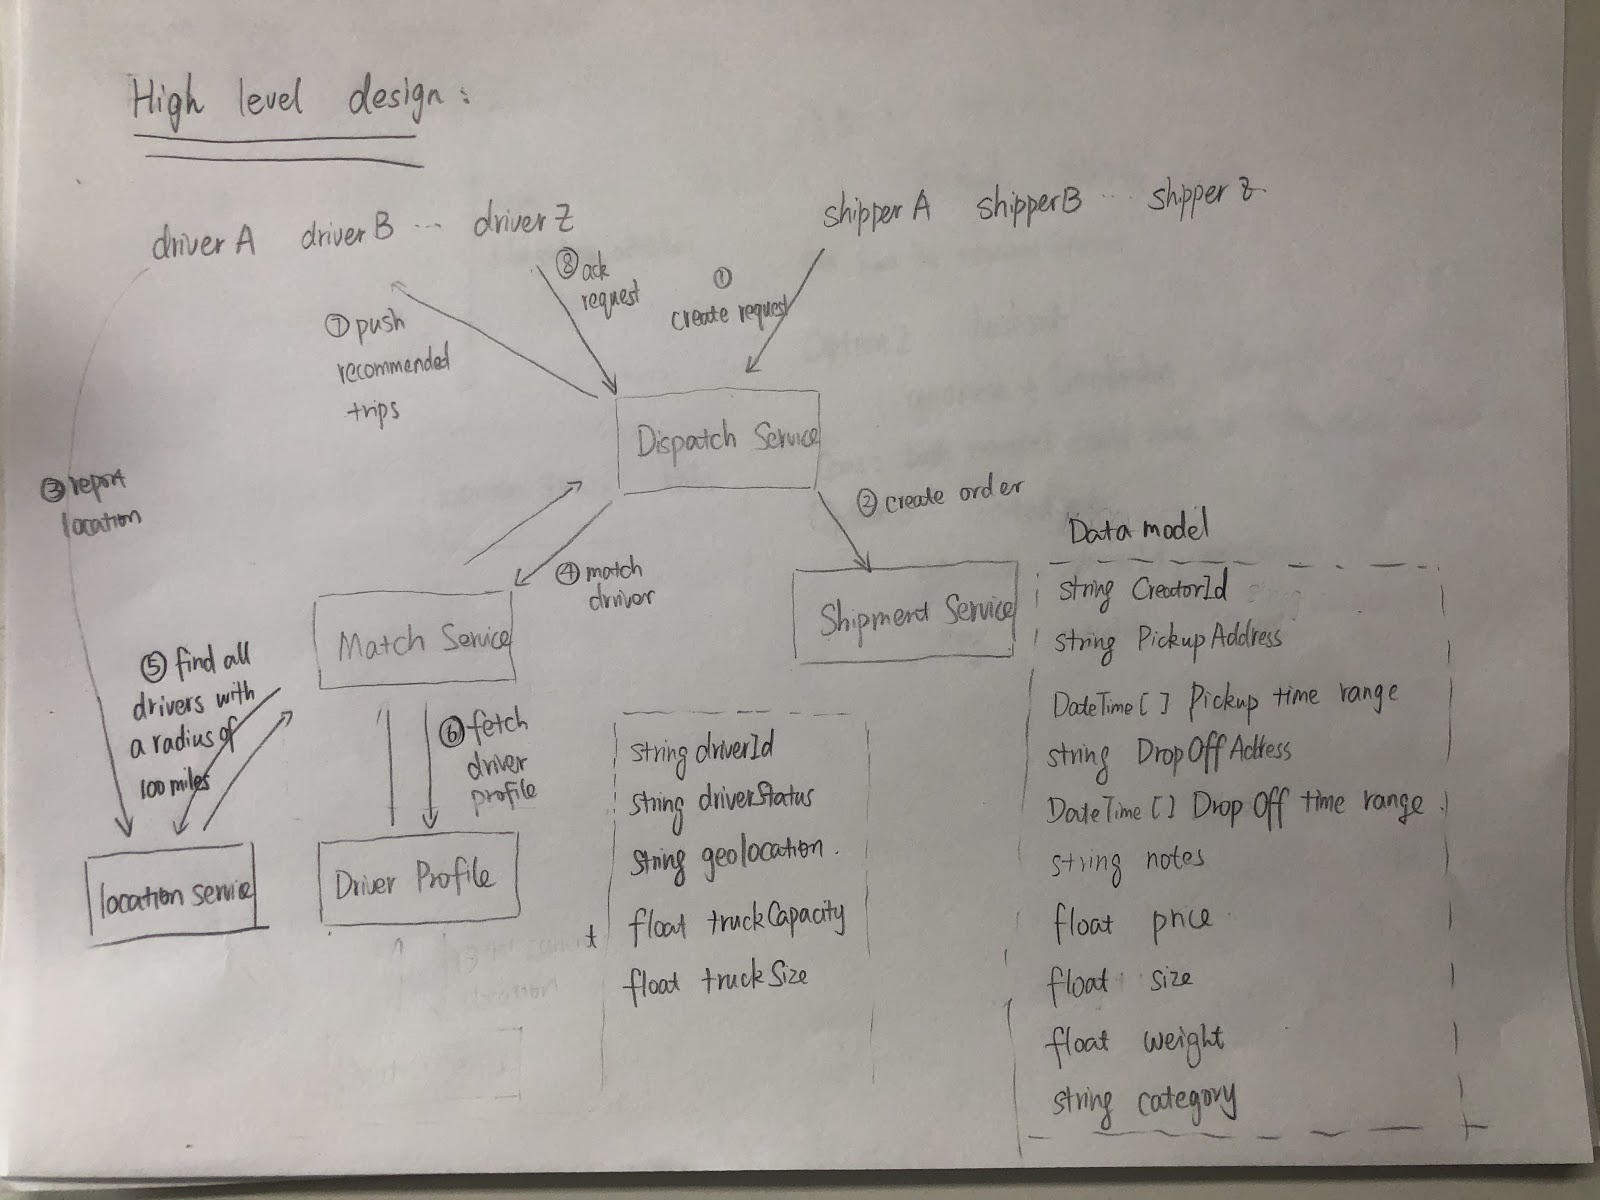 High level design:
driver A driver B ... driver Z
shipper A shipper B ... shipper Z
⑧ ack
request
①
create request
⑦ push
recommended
trips
Dispatch Service
③ report
location
② create order
④ match
driver
Match Service
Shipment Service
⑤ find all
drivers with
a radius of
100 miles
⑥ fetch
driver
profile
location service
Driver Profile
string driverId
string driverStatus
string geolocation.
float truckCapacity
float truckSize
Data model
string CreatorId
string PickupAddress
DateTime[] Pickup time range
string DropOffAddress
DateTime[] Drop Off time range.
string notes
float price
float size
float weight
string category